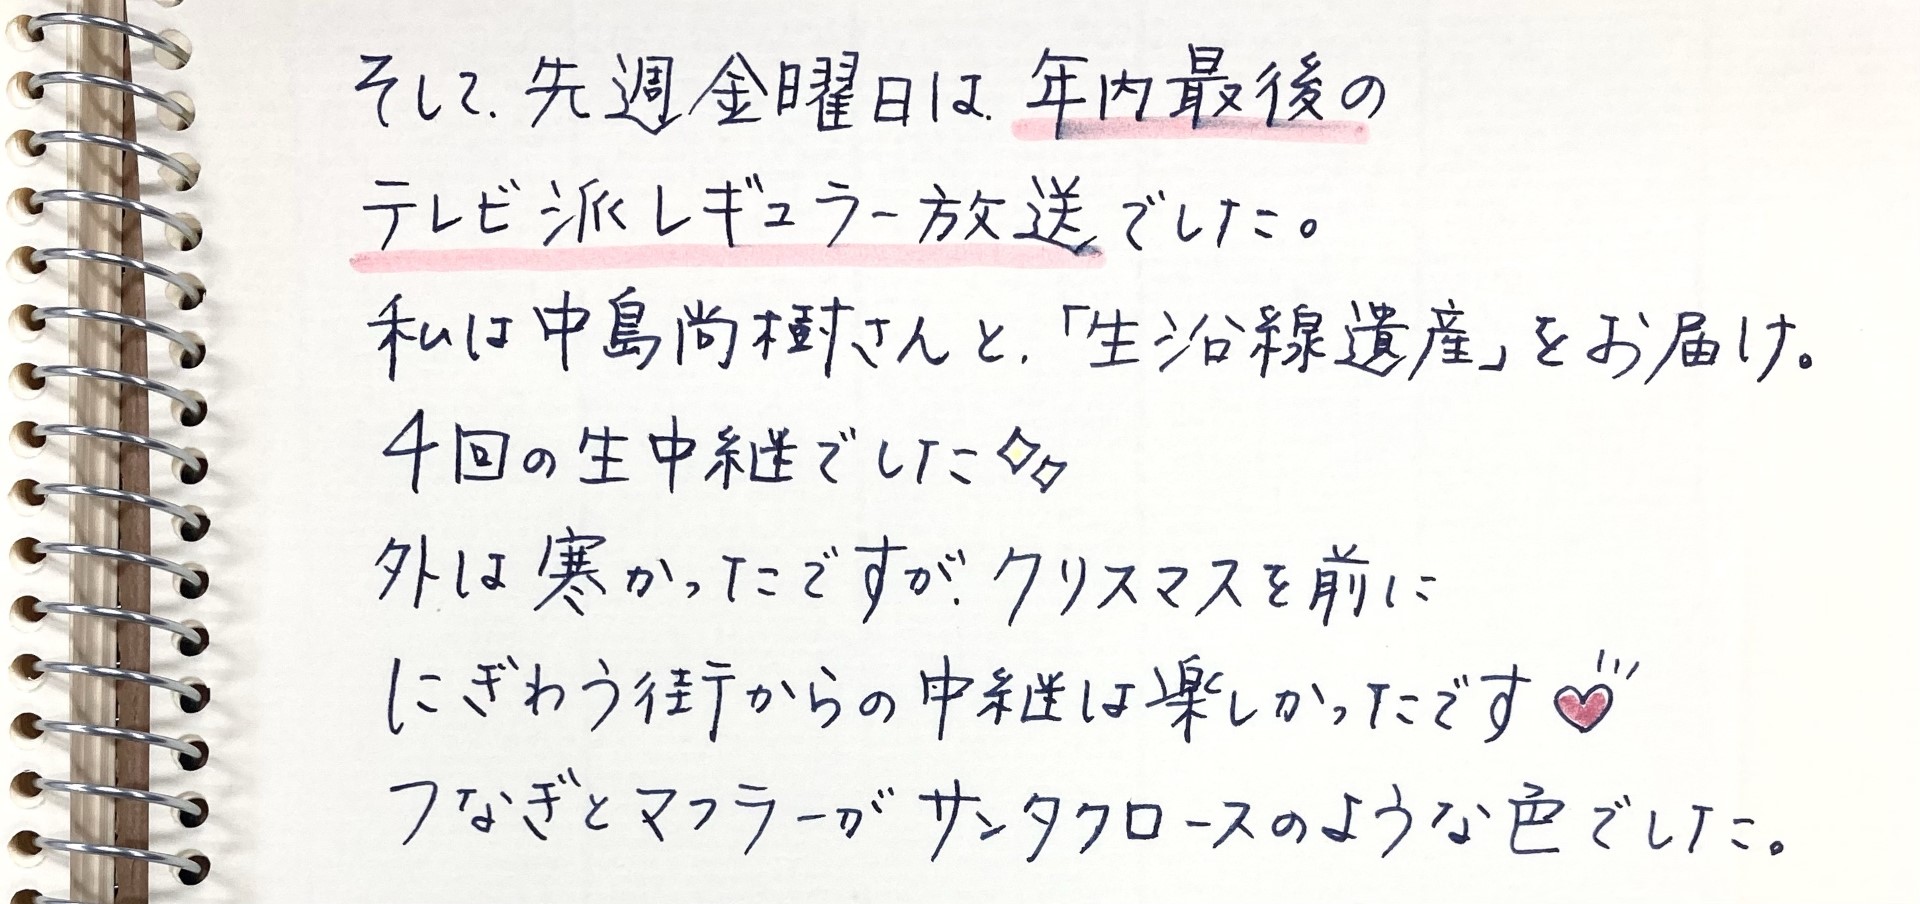 そして、先週金曜日は、年内最後の
テレビ派レギュラー放送でした。
私は中島尚樹さんと、「生沿線遺産」をお届け。
4回の生中継でした
外は寒かったですが、クリスマスを前に
にぎわう街からの中継は楽しかったです
つなぎとマフラーがサンタクロースのような色でした。